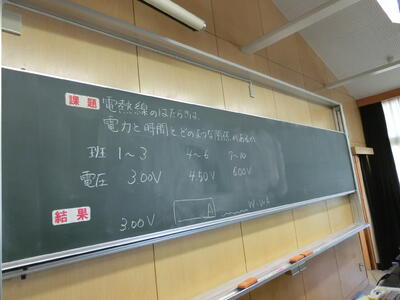 課題 電熱線のはたらきは、
電力と時間とどのような関係があるか
班 1〜3 4〜6 7〜10
電圧 3.00V 4.50V 6.00V
結果
3.00V